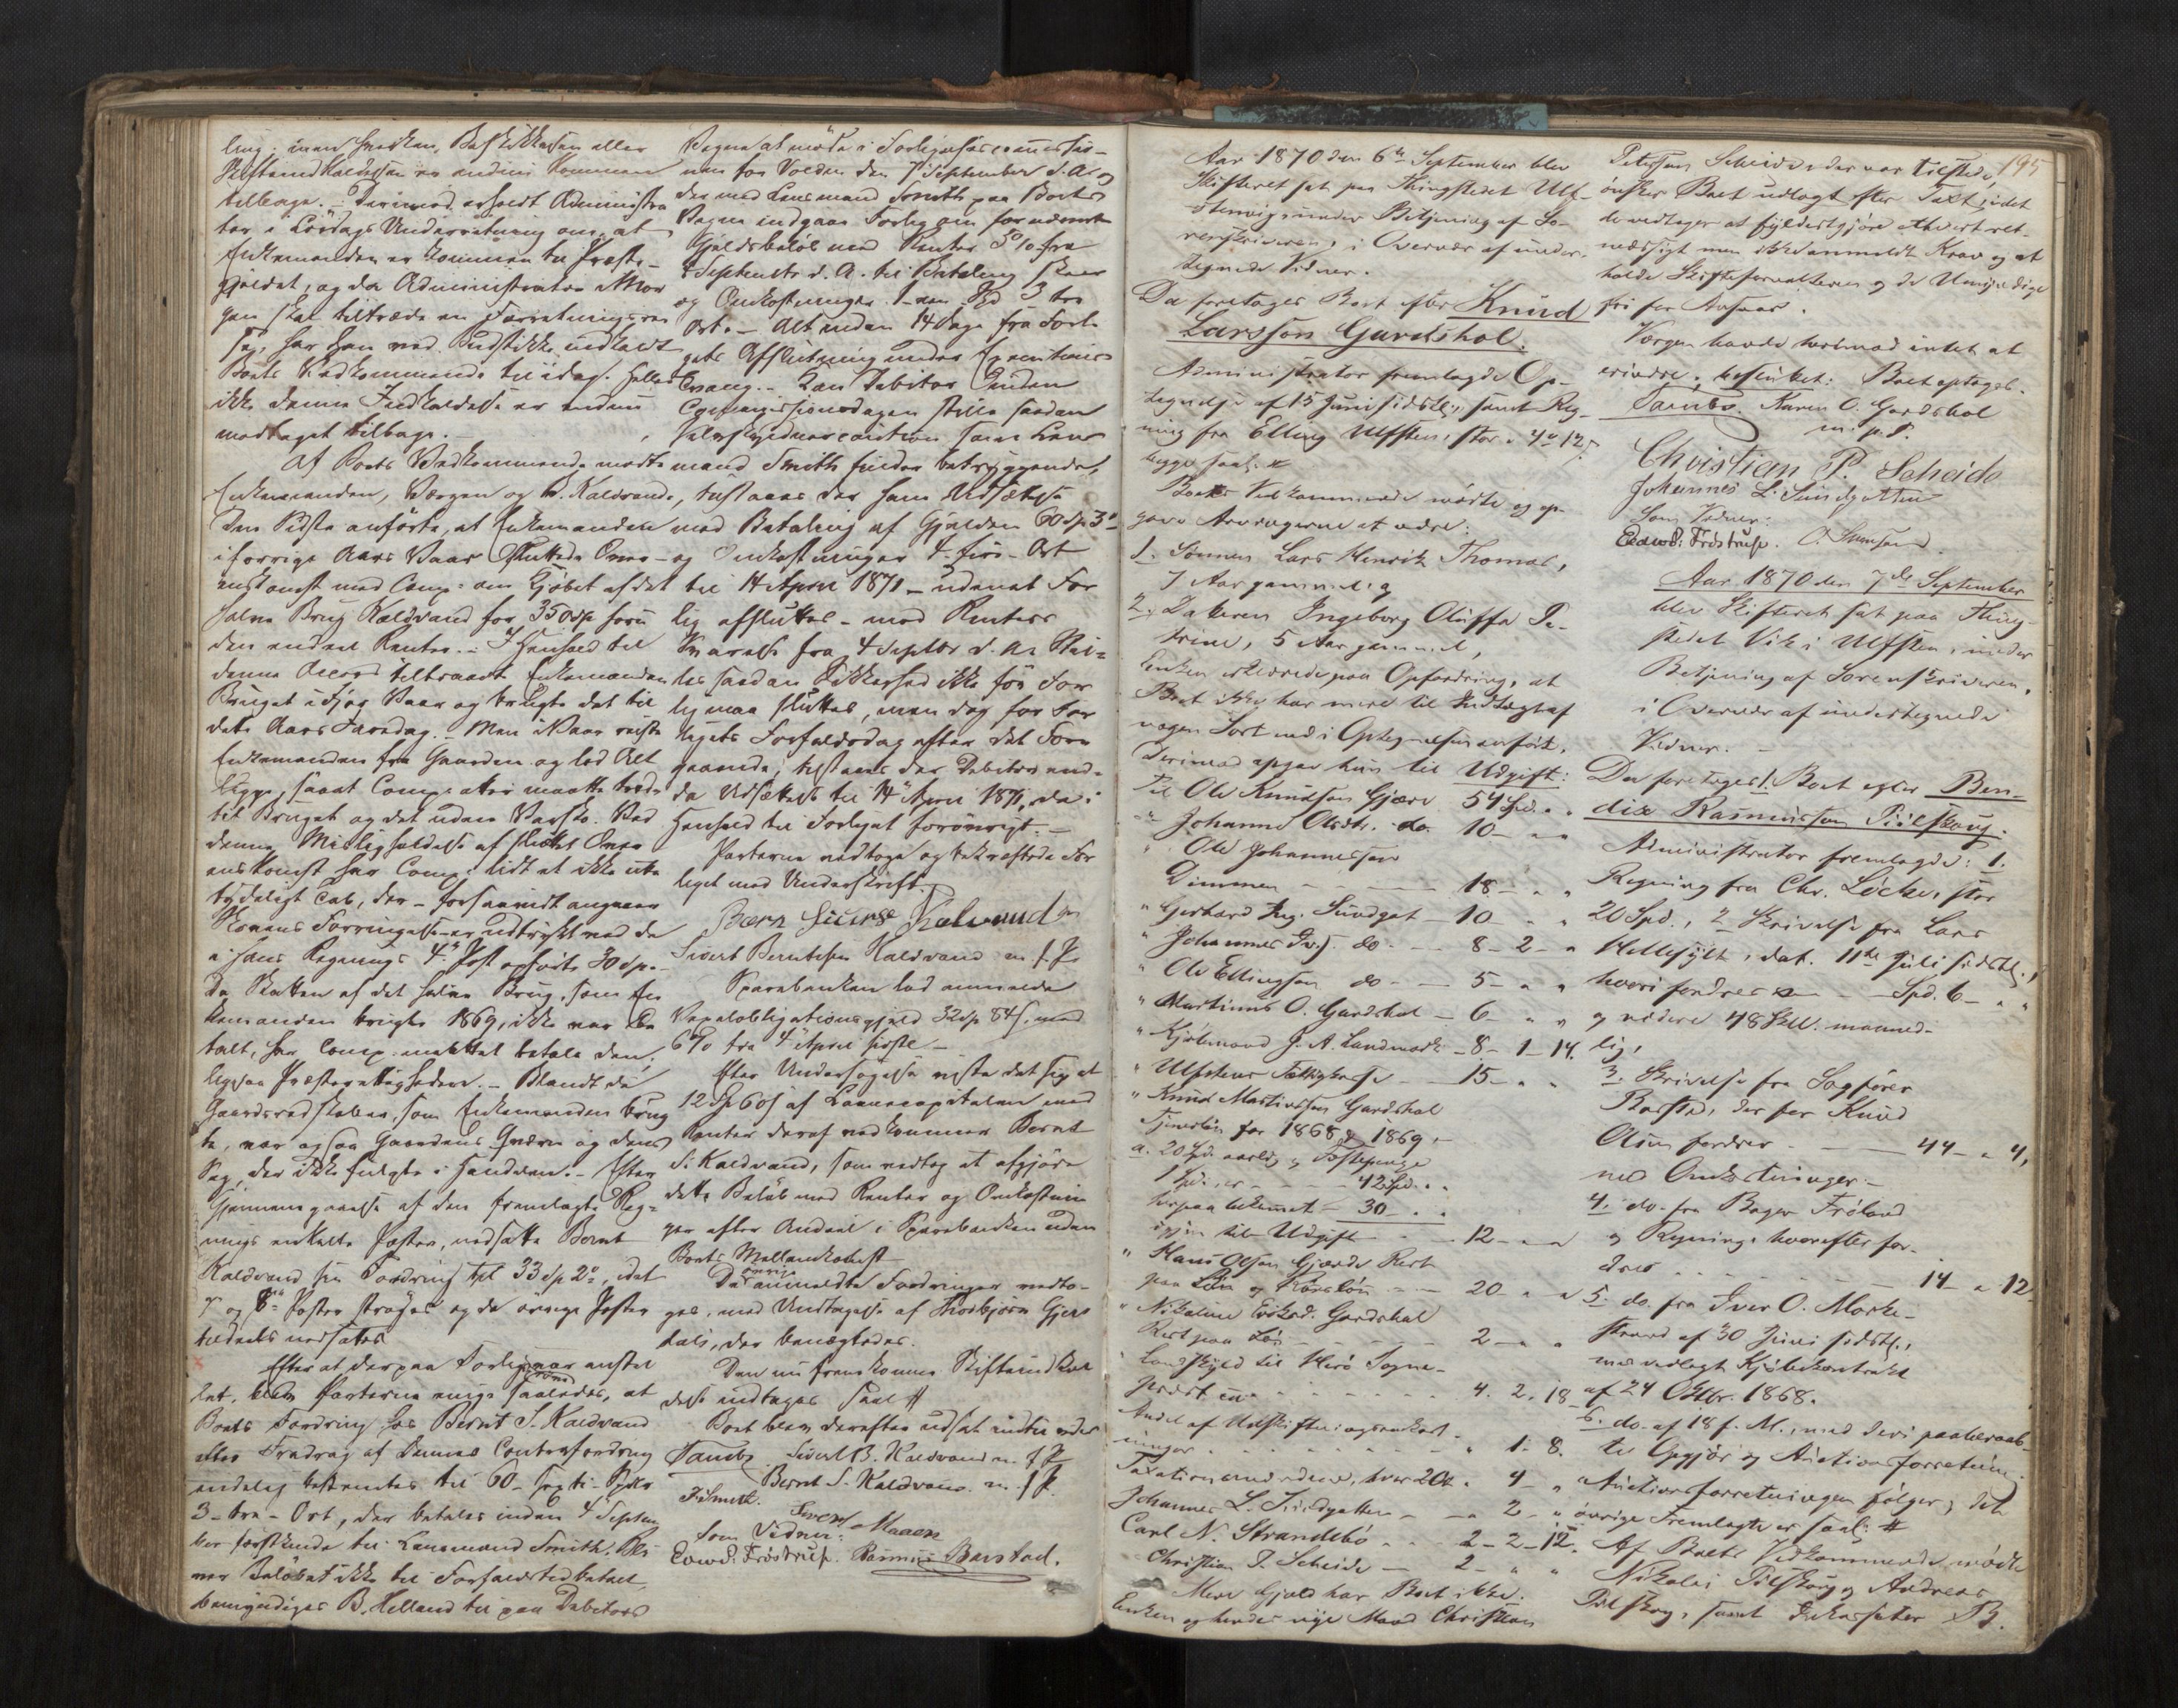 ling; men hverken Beskikkelsen eller
Skifteindkaldelsen er endnu kommen
tilbage. Derimod erholdt Administra
tor i Lørdags Underretning om, at
Enkemanden er kommen til Præste-
gjeldet, og da Administrator imor
gen skal tiltræde en Forretningsrei
se, har han ved Budstikke indkaldt
Boets Vedkommende til idag. Heller
ikke denne Indkaldelse er endnu
modtaget tilbage.
Af Boets Vedkommende mødte
Enkemanden, Værgen og B. Kaldvand.
Den Sidste anførte, at Enkemanden
i forrige Aars Vaar sluttede Over-
enskomst med Comp: om Kjøbet af det
halve Brug Kaldvand for 350 Sp foru
den endeel Renter. I Henhold til
denne Accord tiltraadte Enkemanden
Bruget i fjor Vaar og brugte det til
dette Aars Faredag. Men i Vaar reiste
Enkemanden fra Gaarden og lod Alt
ligge, saa at Comparenten maatte tiltræde
Bruget og det uden Varsko. Ved
denne Misligholdelse af sluttet Over
enskomst har Comp: lidt et ikke ube
tydeligt Tab, der forsaavidt angaaer
i hans Regnings 4de Post opført 30 Sp.
Da Skatten af det halve Brug, som En
kemanden brugte 1869, ikke var be
talt, har Comp. maattet betale den,
ligesaa Præsterettighederne. Blandt de
Gaardsredskaber, som Enkemanden brug
te, var ogsaa Gaardens Qværn og dens
Sag, der ikke fulgte i Handelen. Efter
Gjennemgaaelse af den fremlagte Reg-
nings enkelte Poster, nedsatte Bernt
Kaldvand sin Fordring til 33 Sp 2 ort, idet
7 og 8de Poster strøges og de øvrige Poster
tildeels nedsattes.
Efter at derpaa Forlig var anstil
let, blev Parterne enige saaledes, at
Boets Fordring hos Bernt S. Kaldvand
efter Fradrag af dennes Contrafordring
endelig bestemtes til 60 - sexti - Spdlr
3 - tre - Ort, der betales inden 4 Septem
ber førstkommende til Lensmand Smith. Bli
ver Beløbet ikke til Forfaldstid betalt,
bemyndiges B. Helland til paa Debitors
Vegne at møde i Forligelsescommissio-
nen for Volden den 7 September d. A. og
der med Lensmand Smith paa Boets
Vegne indgaae Forlig om fornævnte
Gjeldsbeløb med Renter 5 % fra
4 September d. A. til Betaling skeer
og Omkostninger 1 - een Spd 3 tre
Ort. - Alt inden 14 Dage fra Forli
gets Afslutning under Executions
Tvang. - Kan Debitor inden
Commissionsdagen stille saadan
Selvskyldnercaution som Lens
mand Smith finder betryggende,
tilstaaes der ham Udsættelse
med Betaling af Gjelden 60 Sp 3 ort
og Omkostninger 4 fire Ort
til 14 April 1871 - uden at For
lig afsluttes - med Renters
Svarelse fra 4 Septbr d. A. Stil-
les saadan Sikkerhed ikke før For
lig maa sluttes, men dog før For
ligets Forfaldsdag efter det Fore
gaaende, tilstaaes der Debitor end-
da Udsættelse til 14 April 1871, da i
Henhold til Forliget forøvrigt.
Parterne vedtoge og bekræftede For
liget med Underskrift.
Bærn Siurse Kalvand
Sivert Berntsen Kaldvand m. f. P.
Sparebanken lod anmelde
Vexelobligationsgjeld 32 Sp 84 s. med
6 % fra 4 April sidste
Efter Undersøgelse viste det sig at
12 Sp 60 s af Laanecapitalen med
Renter deraf vedkommer Bernt
S. Kaldvand, som vedtog at afgjøre
dette Beløb med Renter og Omkostnin
ger efter Andeel i Sparebanken uden
Boets Mellemkomst
De øvrige anmeldte Fordringer vedto-
ges, med Undtagelse af Thorbjørn Gjer
dals, der benægtedes.
Den nu fremkomne Skifteindkal
delse indtages saal. #
Boet blev derefter udsat indtil videre
Tambs. Sivert B. Kaldvand m. f. P.
Bernt S. Kaldvand m. f. P.
FSmith. Iver Maaen
Som Vidner:
Edwd. Frøstrup. Rasmus Barstad.
195
Aar 1870 den 6te September blev
Skifteret sat paa Thingstedet Ulf-
stenvig under Betjening af So-
renskriveren, i Overvær af under-
tegnede Vidner.
Da foretages Boet efter Knud
Larsson Gardshol.
Administrator fremlagde Op-
tegnelse af 15 Juni sidstl., samt Reg-
ning fra Elling Ulfsten, stor 4 ort 12 s.
begge saal. #
Boets Vedkommende mødte og op-
gave Arvingerne at være:
1. Sønnen Lars Henrik Thomas,
7 Aar gammel, og
2. Datteren Ingeborg Oluffa Pe-
trine, 5 Aar gammel,
Enken erklærede paa Opfordring, at
Boet ikke har mere til Indtægt af
nogen Sort end i Optegnelsen anført.
Derimod opgav hun til Udgift:
Til Ole Knudsen Gjære 54 Spd. " "
" Johanne Olsdtr. do. 10 - " "
" Ole Johannessen
Dimmen - - - 18 - " "
" Gerhard Ing. Sundgot - 10 - " "
" Johannes Gr.s. do - - 8 - 2 - "
" Ole Ellingsen do - - 5 - " "
" Martinus O. Gardshol - 6 - " "
" Kjøbmand J. A. Landmark - 8 - 1 - 14.
" Ulfstens Fattigkasse - - 15 - " "
" Knud Martinsen Gardshol
Tjenerløn for 1868 & 1869,
a. 20 Spd. aarlig, og Fæstepenge
1 Spd., er - - - 42 Spd. " "
herpaa bekommet - 30 - " "
igjen til Udgift - - 12 - " "
" Hans Olsen Gjærde Rest
paa Løn og Kosteløn - - 20 - " "
" Nikoline Eriksd. Gardshol
Rest paa Løn - - - - 2 - " "
Landskyld til Herø Sogne-
præst - - - - - - 4. 2. 18
Andel af Udskiftningsomkost-
ninger - - - - - - " 1. 8.
Taxationsmændene, hver 2 Ort " 4 - "
Johannes L. Sundgotten - - " 2 - "
Carl N. Strandebø - - 2 - 2 - 12.
Christian P. Scheide - 2 - " "
Mere Gjeld har Boet ikke.
Enken og hendes nye Mand Christian
Petersen Scheide, der var tilstede,
ønsker Boet udlagt efter Taxt, idet
de vedtager at fyldestgjøre ethvert ret-
mæssigt men ikke anmeldt Krav og at
holde Skifteforvalteren og de Umyndige
fri for Ansvar.
Værgen havde herimod intet at
erindre. besluttet: Boet optages.
Tambs. Karen O. Gardshol
m. p. P.
Christian P. Scheide
Johannes L. Sundgotten
Som Vidner:
Edwd. Frøstrup. O. Samsand
Aar 1870 den 7de September
blev Skifteret sat paa Thing-
stedet Vik i Ulfsten, under
Betjening af Sorenskriveren,
i Overvær af undertegnede
Vidner.
Da foretages: 1. Boet efter Ben-
dix Rasmusson Pilskoug.
Administrator fremlagde: 1.
Regning fra Chr. Løcke, stor
20 Spd., 2. Skrivelse fra Lars
Hellesylt, dat. 11te Juli sidstl.,
hvori fordres - - Spd. 6 - " "
og videre 48 Skill. maaned-
lig,
3. Skrivelse fra Sagfører
Barstad, der for Knud
Olsen fordrer - - 44 - " 4,
med Omkostninger -
4. do. fra Bager Frøland
og Regning, hvorefter for-
dres - - - - 14 - " 12.
5. do. fra Iver O. Mork-
strand af 30 Juni sidstl.,
med vedlagt Kjøbekontrakt
af 24 Oktbr. 1868.
6. do. af 18 f. M., med deri paaberaab-
te Opgjør og Auctionsforretning.
Auctionsforretningen følger; det
øvrige Fremlagte er saal. #
Af Boets Vedkommende mødte
Nikolai Pilskoug og Andreas
Pilskog, samt Inkassator B.